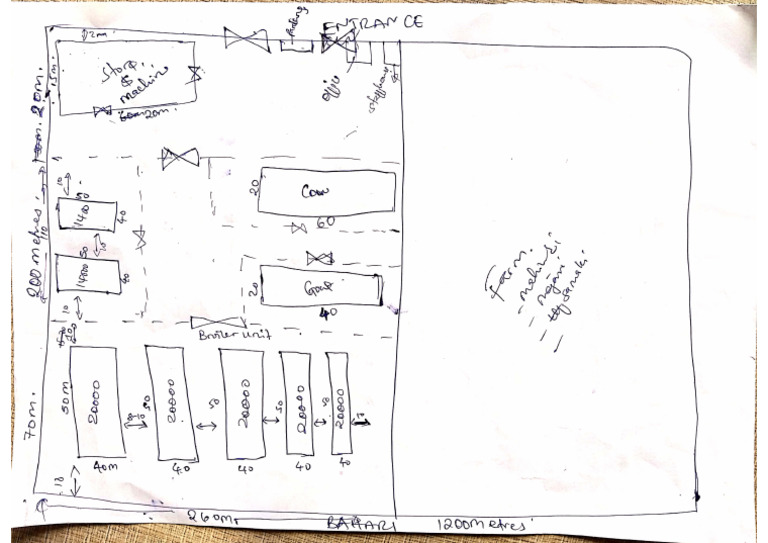 ENTRANCE
12m
15m
Store
&
machine
20m
office
200 metres
20m.
10
50
1400
40
10
50
14000
40
10
20
Cow
60
20
Goat
40
Farm.
Broiler unit
70m.
50m
20000
40m
10
50
20000
40
50
20000
40
50
20000
40
50
20000
40
10
10
260m.
BAHARI
1200 metres